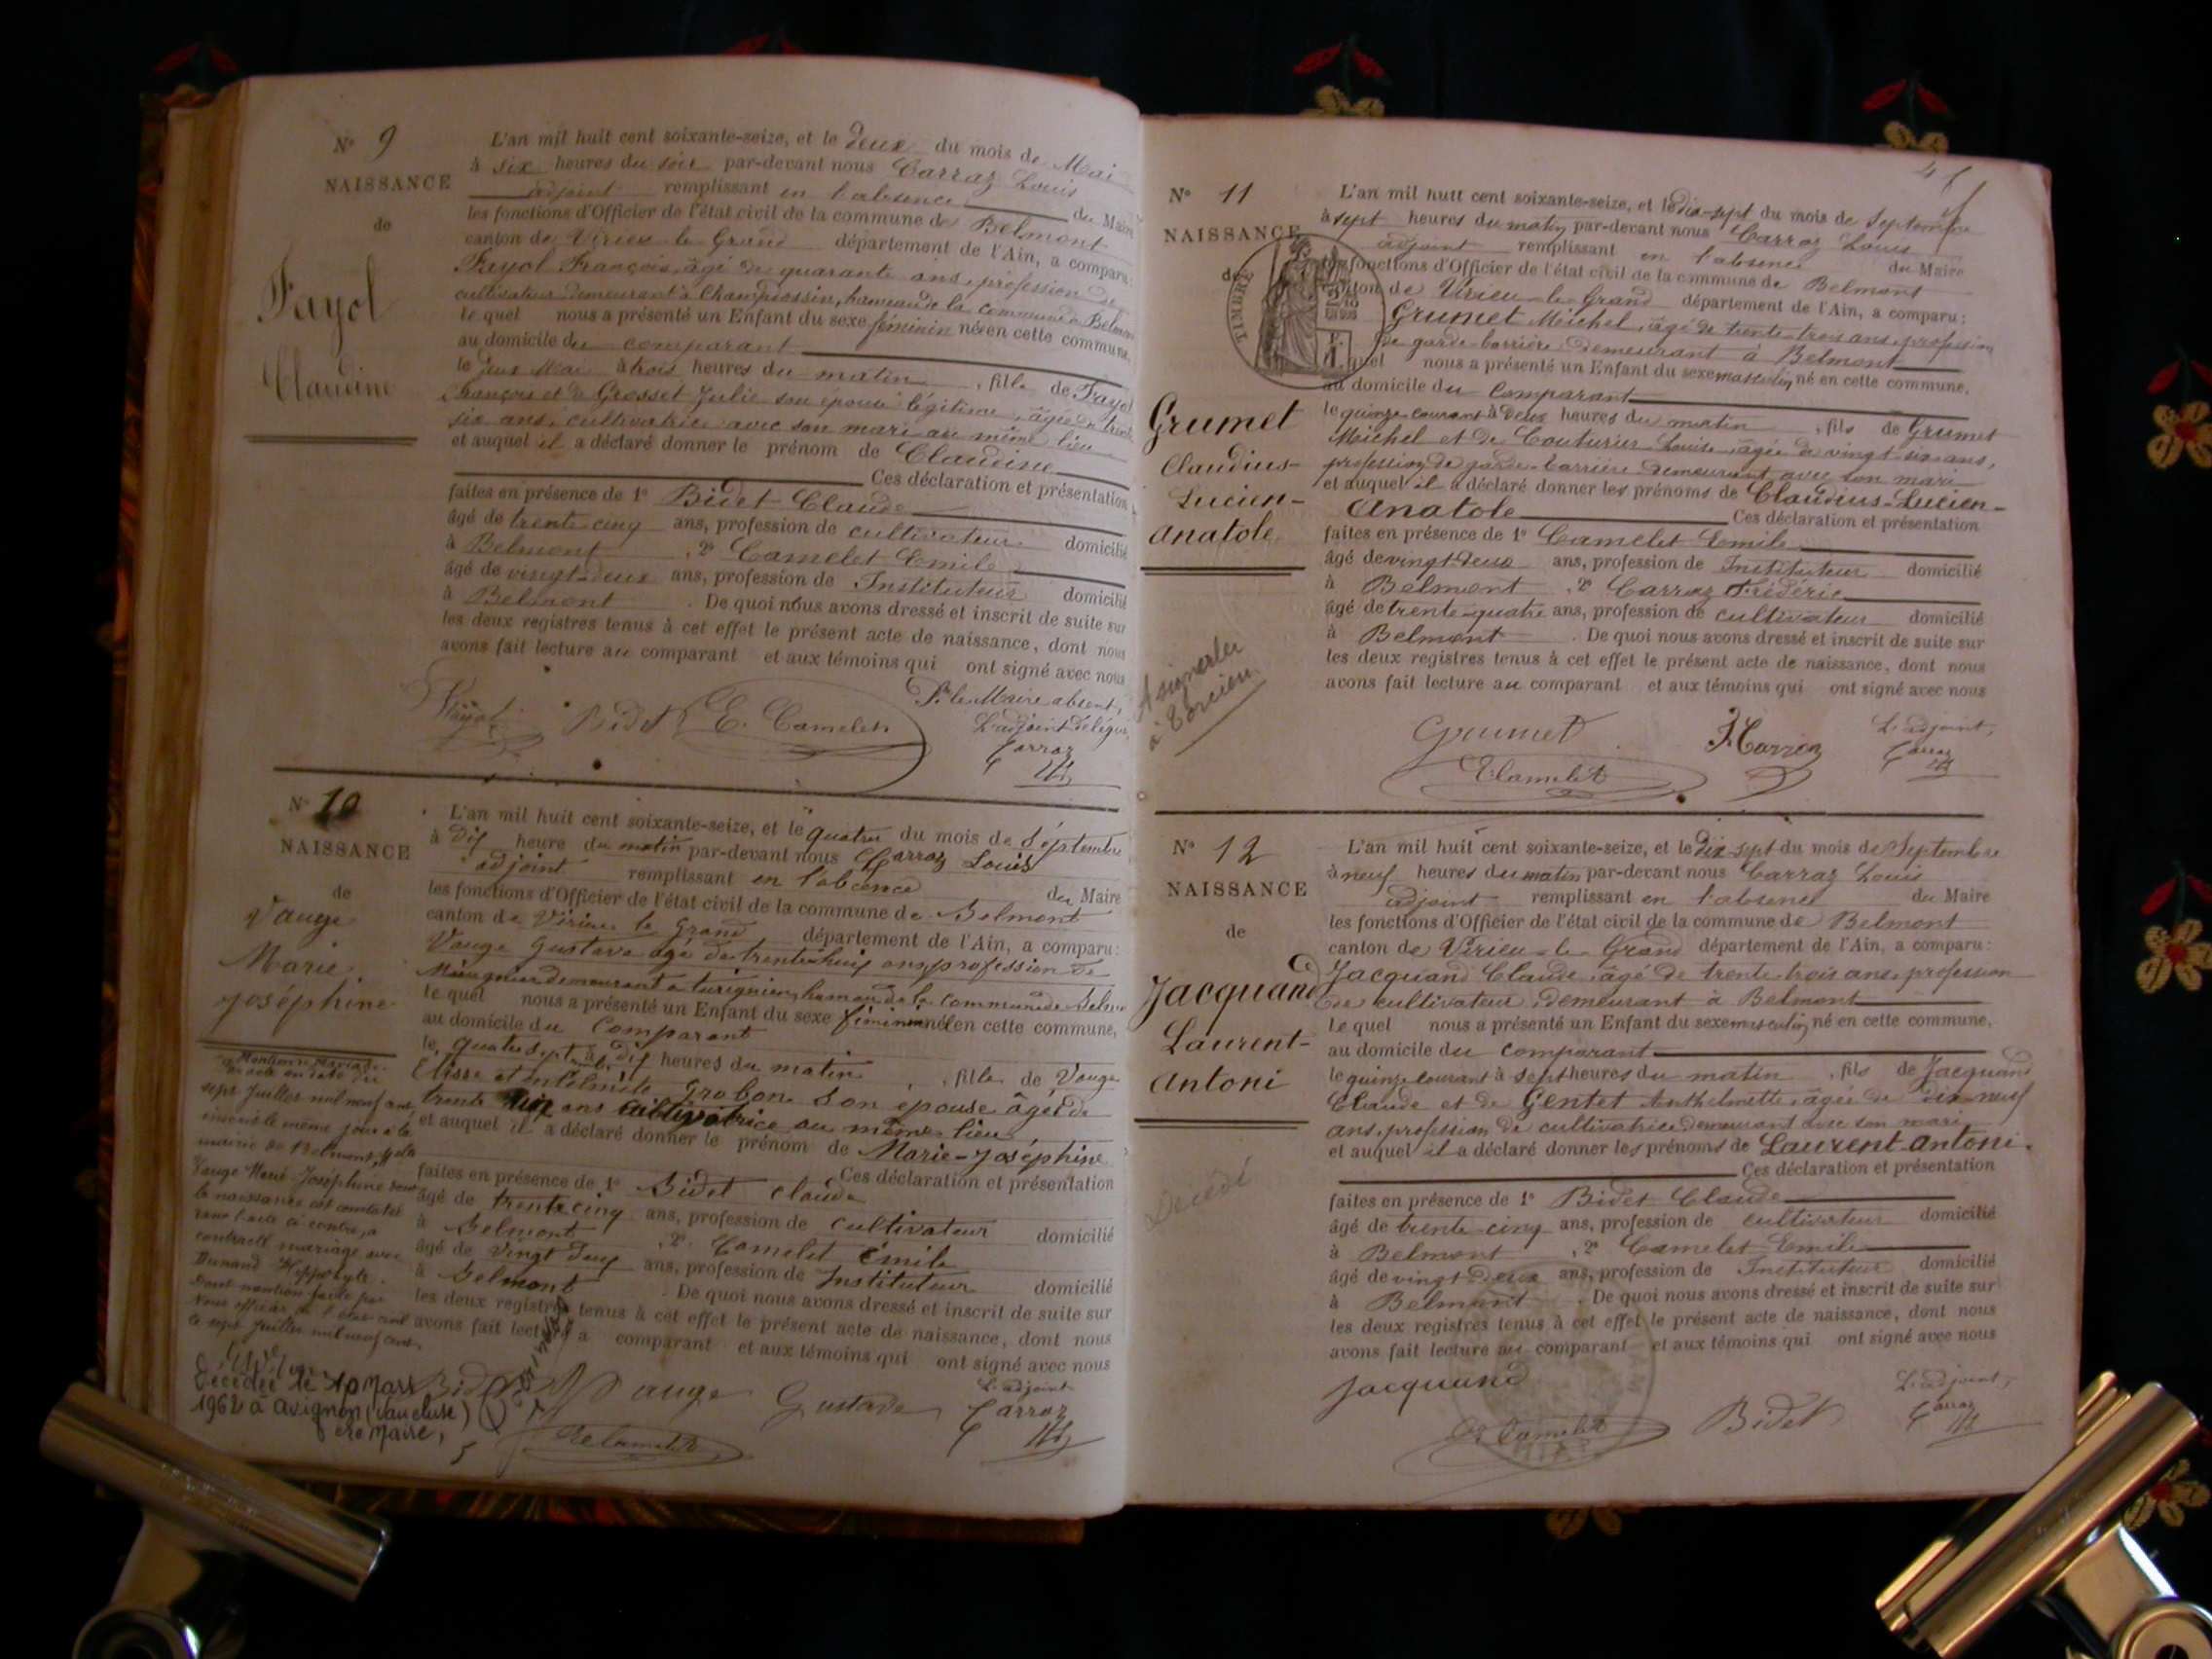 N° 9
NAISSANCE
de
Fayol
Claudine
L'an mil huit cent soixante-seize, et le deux du mois de Mai
à six heures du soir par-devant nous Carraz Louis
adjoint remplissant en l'absence du Maire
les fonctions d'Officier de l'état civil de la commune de Belmont
canton de Virieu le Grand département de l'Ain, a comparu:
Fayol François, âgé de quarante ans, profession de
cultivateur demeurant à Champdossin, hameau de la commune de Belmont
le quel nous a présenté un Enfant du sexe féminin né en cette commune,
au domicile du comparant
le deux Mai à trois heures du matin, fille de Fayol
François et de Grosset Julie son épouse légitime, âgée de trente
six ans, cultivatrice avec son mari au même lieu
et auquel il a déclaré donner le prénom de Claudine
Ces déclaration et présentation
faites en présence de 1° Bidet Claude
âgé de trente cinq ans, profession de cultivateur domicilié
à Belmont, 2° Camelet Emile
âgé de vingt-deux ans, profession de Instituteur domicilié
à Belmont. De quoi nous avons dressé et inscrit de suite sur
les deux registres tenus à cet effet le présent acte de naissance, dont nous
avons fait lecture au comparant et aux témoins qui ont signé avec nous
Pr le Maire absent,
L'adjoint délégué,
Fayol Bidet E. Camelet Carraz
N° 10
NAISSANCE
de
Vauge
Marie
Joséphine
L'an mil huit cent soixante-seize, et le quatre du mois de Septembre
à dix heure du matin par-devant nous Carraz Louis
adjoint remplissant en l'abcence du Maire
les fonctions d'Officier de l'état civil de la commune de Belmont
canton de Virieu le Grand département de l'Ain, a comparu:
Vauge Gustave âgé de trente huit ans profession de
demeurant a hameau de la commune de Belmont
le quel nous a présenté un Enfant du sexe féminin né en cette commune,
au domicile du Comparant
le quatre septembre à dix heures du matin, fille de Vauge
Grobon Son épouse âgée de
trente ans cultivatrice au même lieu
et auquel il a déclaré donner le prénom de Marie-Joséphine
Ces déclaration et présentation
faites en présence de 1° Bidet claude
âgé de trente cinq ans, profession de cultivateur domicilié
à Belmont, 2° Camelet Emile
âgé de vingt deux ans, profession de Instituteur domicilié
à Belmont. De quoi nous avons dressé et inscrit de suite sur
les deux registres tenus à cet effet le présent acte de naissance, dont nous
avons fait lecture a comparant et aux témoins qui ont signé avec nous
L'adjoint
Bidet Vauge Gustave Carraz
E Camelet
acte en date du
sept juillet mil neuf cent,
inscrit le même jour à la
mairie de Belmont,
Vauge Marie-Joséphine dont
la naissance est constatée
dans l'acte ci contre, a
contracté mariage avec
Dunand Hippolyte.
Dont mention faite par
Nous officier de l'état civil
le sept juillet mil neuf cent.
Décédée le 10 Mars
1962 à Avignon (Vaucluse)
Le Maire,
N° 11
NAISSANCE
de
TIMBRE
Grumet
Claudius-
Lucien-
Anatole
L'an mil huit cent soixante-seize, et le dix-sept du mois de Septembre
à sept heures du matin par-devant nous Carraz Louis
adjoint remplissant en l'absence du Maire
les fonctions d'Officier de l'état civil de la commune de Belmont
canton de Virieu-le-Grand département de l'Ain, a comparu:
Grumet Michel, âgé de trente-trois ans, profession
de garde-barrière demeurant à Belmont
le quel nous a présenté un Enfant du sexe masculin, né en cette commune,
au domicile du Comparant
le quinze courant à deux heures du matin, fils de Grumet
Michel et de Couturier Louise âgée de vingt-six ans,
profession de garde-barrière demeurant avec son mari
et auquel il a déclaré donner les prénoms de Claudius-Lucien-
Anatole Ces déclaration et présentation
faites en présence de 1° Camelet Emile
âgé de vingt-deux ans, profession de Instituteur domicilié
à Belmont, 2° Carraz Frédéric
âgé de trente-quatre ans, profession de cultivateur domicilié
à Belmont. De quoi nous avons dressé et inscrit de suite sur
les deux registres tenus à cet effet le présent acte de naissance, dont nous
avons fait lecture au comparant et aux témoins qui ont signé avec nous
L'adjoint,
Grumet F. Carraz Carraz
E Camelet
N° 12
NAISSANCE
de
Jacquand
Laurent-
Antoni
Décédé
L'an mil huit cent soixante-seize, et le dix-sept du mois de Septembre
à neuf heures du matin par-devant nous Carraz Louis
adjoint remplissant en l'absence du Maire
les fonctions d'Officier de l'état civil de la commune de Belmont
canton de Virieu-le-Grand département de l'Ain, a comparu:
Jacquand Claude, âgé de trente-trois ans, profession
de cultivateur, demeurant à Belmont
le quel nous a présenté un Enfant du sexe masculin, né en cette commune,
au domicile du comparant
le quinze courant à sept heures du matin, fils de Jacquand
Claude et de Gentet Anthelmette, âgée de dix-neuf
ans, profession de cultivatrice demeurant avec son mari
et auquel il a déclaré donner les prénoms de Laurent-Antoni.
Ces déclaration et présentation
faites en présence de 1° Bidet Claude
âgé de trente-cinq ans, profession de cultivateur domicilié
à Belmont, 2° Camelet Emile
âgé de vingt-deux ans, profession de Instituteur domicilié
à Belmont. De quoi nous avons dressé et inscrit de suite sur
les deux registres tenus à cet effet le présent acte de naissance, dont nous
avons fait lecture au comparant et aux témoins qui ont signé avec nous
L'adjoint,
Jacquand Carraz
E Camelet Bidet